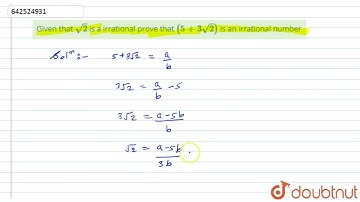 642524931
Given that √2 is a irrational prove that (5 + 3√2) is an irrational number
Solⁿ:- 5+3√2 = a/b
3√2 = a/b - 5
3√2 = a-5b/b
√2 = a-5b/3b
doubtnut